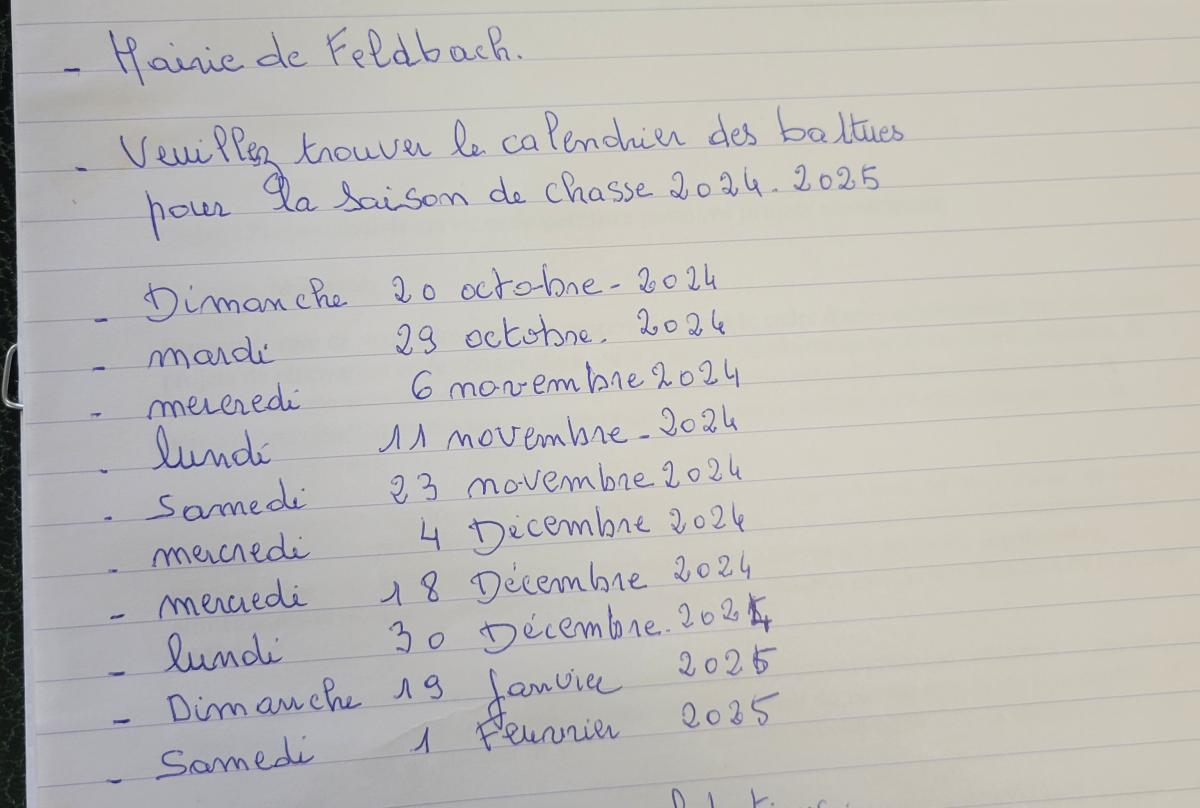 - Mairie de Feldbach.
- Veuillez trouver le calendrier des battues
pour la saison de chasse 2024.2025
- Dimanche 20 octobre - 2024
- mardi 29 octobre. 2024
- mercredi 6 novembre 2024
- lundi 11 novembre - 2024
- Samedi 23 novembre 2024
- mercredi 4 Décembre 2024
- mercredi 18 Décembre 2024
- lundi 30 Décembre. 2024
- Dimanche 19 Janvier 2025
- Samedi 1 Feuvrier 2025